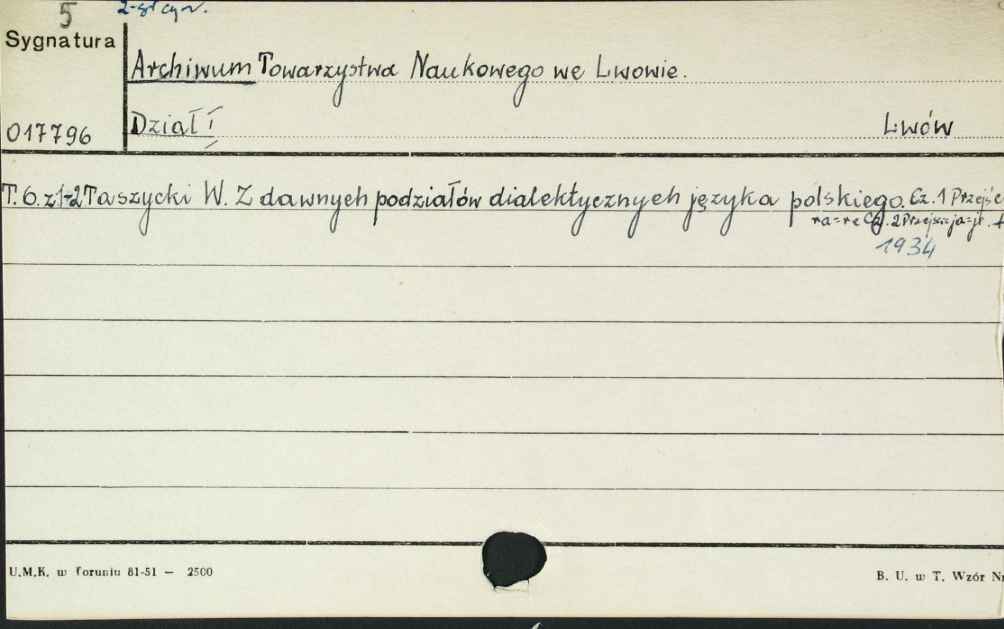 5
Sygnatura
Archiwum Towarzystwa Naukowego we Lwowie.
017796
Dział I
Lwów
T. 6. z 1-2 Taszycki W. Z dawnych podziałów dialektycznych języka polskiego. Cz. 1 Przejście
ra=re Cz. 2 Przejście ja=je.
1934
U.M.K. w Toruniu 81-51 — 2500
B. U. w T. Wzór Nr